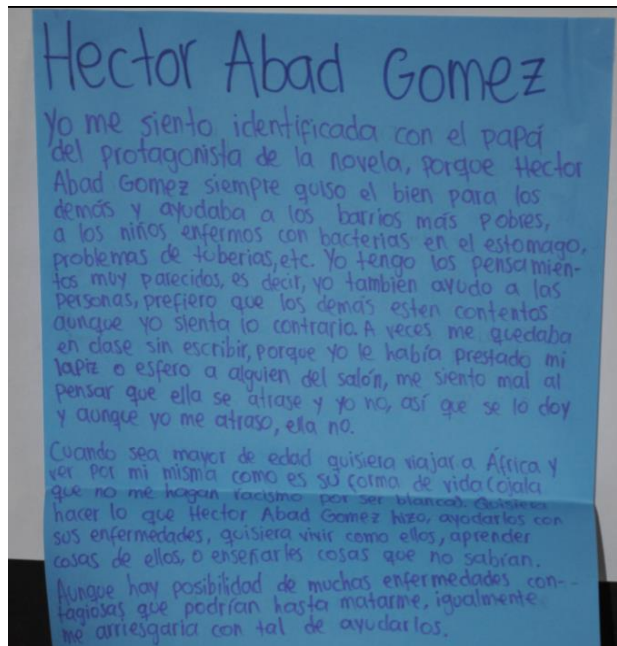 Hector Abad Gomez
Yo me siento identificada con el papá
del protagonista de la novela, porque Hector
Abad Gomez siempre quiso el bien para los
demás y ayudaba a los barrios más pobres,
a los niños enfermos con bacterias en el estomago,
problemas de tuberias, etc. Yo tengo los pensamien-
tos muy parecidos, es decir, yo tambien ayudo a las
personas, prefiero que los demás esten contentos
aunque yo sienta lo contrario. A veces me quedaba
en clase sin escribir, porque yo le había prestado mi
lapiz o esfero a alguien del salón, me siento mal al
pensar que ella se atrase y yo no, así que se lo doy
y aunque yo me atraso, ella no.
Cuando sea mayor de edad quisiera viajar a África y
ver por mi misma como es su forma de vida (ojala
que no me hagan racismo por ser blanca). Quisiera
hacer lo que Hector Abad Gomez hizo, ayudarlos con
sus enfermedades, quisiera vivir como ellos, aprender
cosas de ellos, o enseñarles cosas que no sabran.
Aunque hay posibilidad de muchas enfermedades con--
tagiosas que podrían hasta matarme, igualmente
me arriesgaria con tal de ayudarlos.